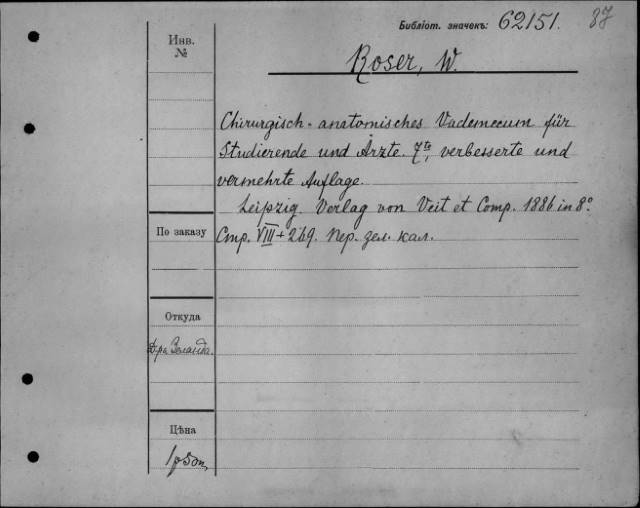 Библіот. значекъ: 62151. 87
Инв.
№
Roser, W.
Chirurgisch-anatomisches Vademecum für
Studierende und Ärzte. 7te, verbesserte und
vermehrte Auflage.
Leipzig. Verlag von Veit et Comp. 1886 in 8°.
Стр. VIII + 269. Пер. зел. кал.
По заказу
Откуда
Д-ра Зеланда.
Цѣна